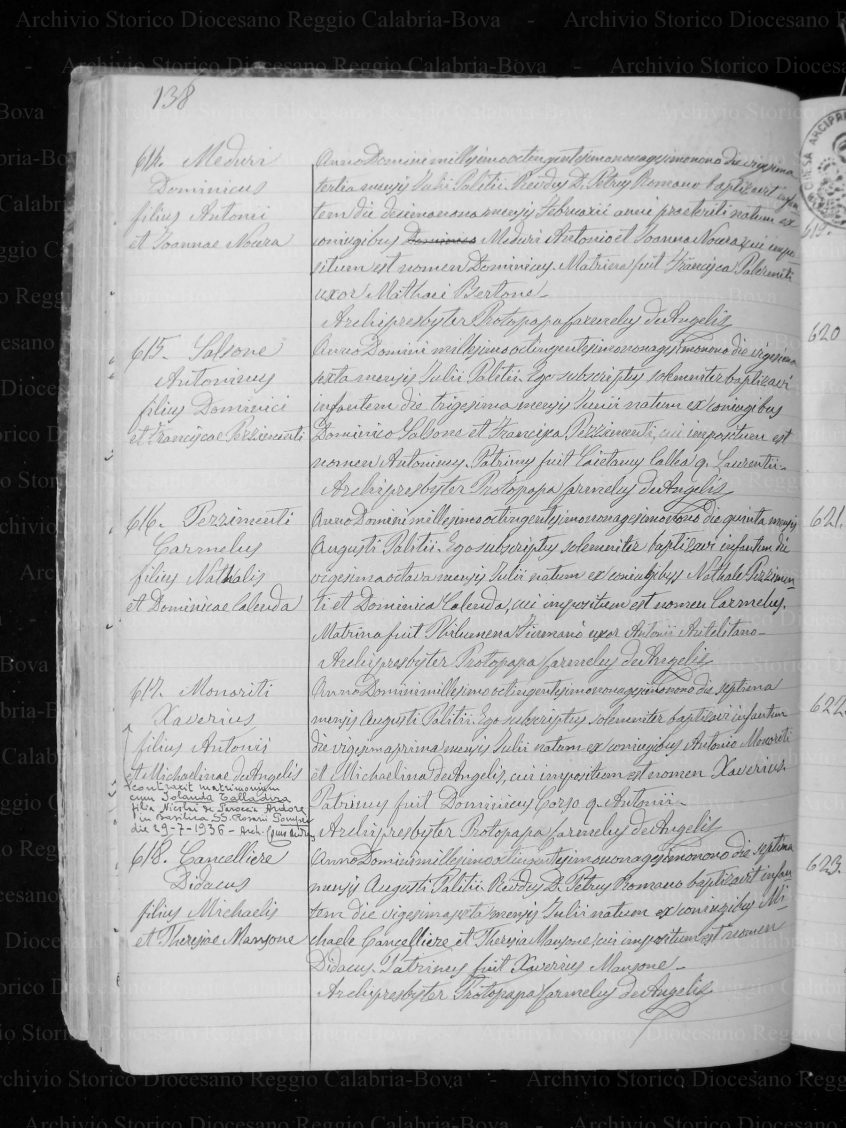 138
614. Meduri
Dominicus
filius Antonii
et Joannae Noura
Anno Domini millesimo octingentesimo nonagesimo nono die vigesima
tertia mensis Julii Palitii Revdus D. Petrus Romano baptizavit infan
tem die decimanona mensis Februarii anni praeteriti natum ex
coniugibus Dominico Meduri Antonio et Joanna Noura, cui impo-
situm est nomen Dominicus. Matrina fuit Francisca Palermiti
uxor Mathaei Bertone-
Archipresbyter Protopapa Carmelus de Angelis
615. Salsone
Antoninus
filius Dominici
et Franciscae Pezzimenti
Anno Domini millesimo octingentesimo nonagesimo nono die vigesima
sexta mensis Julii Palitii. Ego subscriptus solemniter baptizavi
infantem die trigesima mensis Junii natum ex coniugibus
Dominico Salsone et Francisca Pezzimenti, cui impositum est
nomen Antoninus. Patrinus fuit Caietanus Callea q. Laurentii-
Archipresbyter Protopapa Carmelus de Angelis
616. Pezzimenti
Carmelus
filius Nathalis
et Dominicae Calenda
Anno Domini millesimo octingentesimo nonagesimo nono die quinta mensis
Augusti Palitii. Ego subscriptus solemniter baptizavi infantem die
vigesima octava mensis Julii natum ex coniugibus Nathale Pezzimen-
ti et Dominica Calenda, cui impositum est nomen Carmelus.
Matrina fuit Philumena Siumanò uxor Antonii Antelitano-
Archipresbyter Protopapa Carmelus de Angelis
617. Monoriti
Xaverius
filius Antonii
et Michaelinae de Angelis
contraxit matrimonium
cum Iolanda Talladira
filia Nicolai
in Basilica SS. Rosarii Pompei
die 29-7-1936 - Arch.
Anno Domini millesimo octingentesimo nonagesimo nono die septima
mensis Augusti Palitii. Ego subscriptus solemniter baptizavi infantem
die vigesima prima mensis Julii natum ex coniugibus Antonio Monoriti
et Michaelina de Angelis, cui impositum est nomen Xaverius.
Patrinus fuit Dominicus Corso q. Antonii-
Archipresbyter Protopapa Carmelus de Angelis
618. Cancelliere
Didacus
filius Michaelis
et Theresae Mansone
Anno Domini millesimo octingentesimo nonagesimo nono die septima
mensis Augusti Palitii. Revdus D. Petrus Romano baptizavit infan-
tem die vigesima sexta mensis Julii natum ex coniugibus Mi-
chaele Cancelliere et Theresa Mansone, cui impositum est nomen
Didacus. Patrinus fuit Xaverius Mansone-
Archipresbyter Protopapa Carmelus de Angelis
619.
620
621.
622.
623.